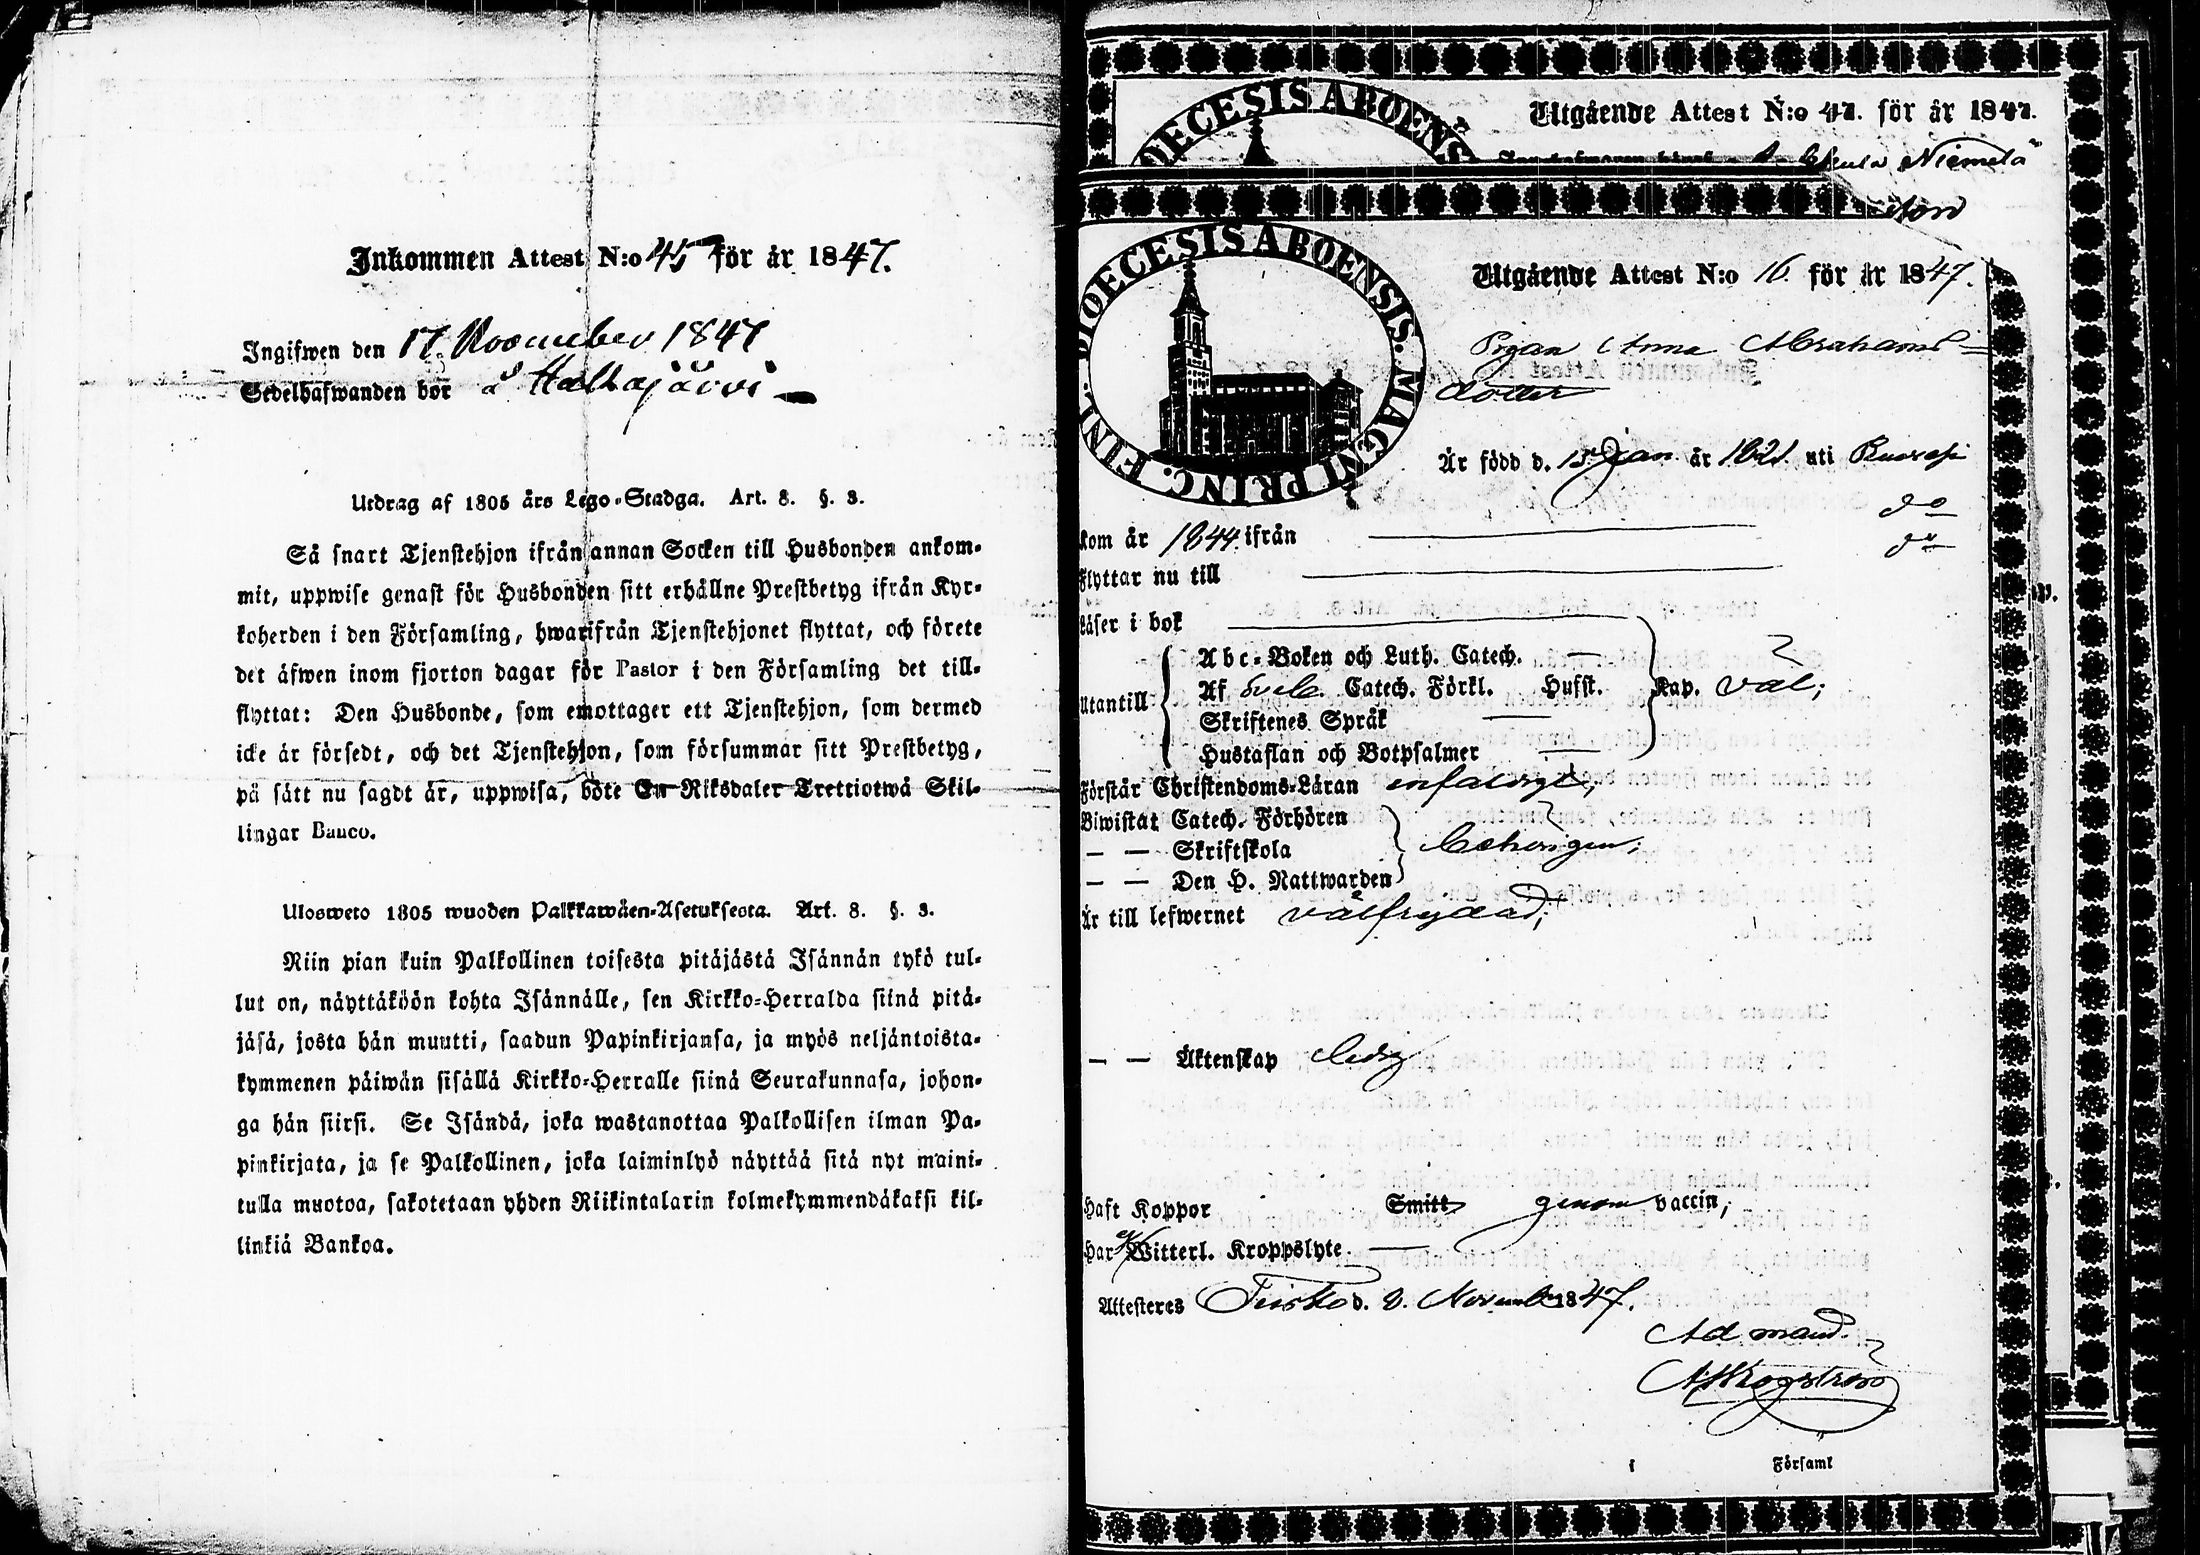 Inkommen Attest N:o 45 för år 1847.
Ingifwen den 17. November 1847
Sedelhafwanden bor å Haltiajärvi
Utdrag af 1805 års Lego-Stadga. Art. 8. §. 3.
Så snart Tjenstehjon ifrån annan Socken till Husbonden ankom-
mit, uppwise genast för Husbonden sitt erhållne Prestbetyg ifrån Kyr-
koherden i den Församling, hwarifrån Tjenstehjonet flyttat, och förete
det äfwen inom fjorton dagar för Pastor i den Församling det till-
flyttat: Den Husbonde, som emottager ett Tjenstehjon, som dermed
icke är försedt, och det Tjenstehjon, som försummar sitt Prestbetyg,
på sätt nu sagdt är, uppwisa, böte En Riksdaler Trettiotwå Skil-
lingar Banco.
Ulosweto 1805 wuoden Palkkawäen-Asetuksesta. Art. 8. §. 3.
Niin pian kuin Palkollinen toisesta pitäjästä Isännän tykö tul-
lut on, näyttäköön kohta Isännälle, sen Kirkko-Herralda siinä pitä-
jäsä, josta hän muutti, saadun Papinkirjansa, ja myös neljäntoista-
kymmenen päiwän sisällä Kirkko-Herralle siinä Seurakunnasa, johon-
ga hän siirsi. Se Isändä, joka wastanottaa Palkollisen ilman Pa-
pinkirjata, ja se Palkollinen, joka laiminlyö näyttää sitä nyt maini-
tulla muotoa, sakotetaan yhden Riikintalarin kolmekymmendäkaksi kil-
linkiä Bankoa.
DIOECESIS ABOENS
Utgående Attest N:o 41. för år 1847.
Niemelä
DIOECESIS ABOENSIS. MAGNI PRINC. FINL.
Utgående Attest N:o 16. för år 1847.
Pigan Anna Abrahams-
dotter
Är född d. 15 Jan år 1821. uti Ruovesi
kom år 1844. ifrån do
Flyttar nu till do
Läser i bok
Utantill
Abc-Boken och Luth. Catech.
Af Sveb. Catech. Förkl. Husst. Kap. väl;
Skriftenes Språk
Hustaflan och Botpsalmer
Förstår Christendoms-Läran enfaldigt;
Biwistat Catech. Förhören
— — Skriftskola behörigen;
— — Den H. Nattwarden
Är till lefwernet välfrejdad;
— — Äktenskap ledig
Haft Koppor Smitt genom vaccin;
Har ej Witterl. Kroppslyte.
Attesteres Teisko d. 8. November 1847.
Ad mand.
Församl